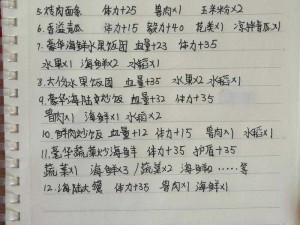 5.烤肉面条 体力+25 兽肉×1 玉米粉×2
6.香溢青瓜 体力+15 毅力+40 花类×1 凉拌青瓜×1
7.豪华海鲜水果饭团 血量+23 体力+35
水果×1 海鲜×2 水稻×1
8.大份水果饭团 血量+35 水果×2 水稻×1
9.豪华海陆烩炒饭 血量+32 体力+35
兽肉×1 海鲜×1 水稻×2
10.鲜肉炒饭 血量+12 体力+15 兽肉×1 水稻×1
11.豪华蔬菜炒海鲜 体力+35 护盾+35
蔬菜×1 海鲜×3 / 蔬菜×2 海鲜×2 ……等
12.海陆大餐 体力+35 兽肉×1 海鲜×1